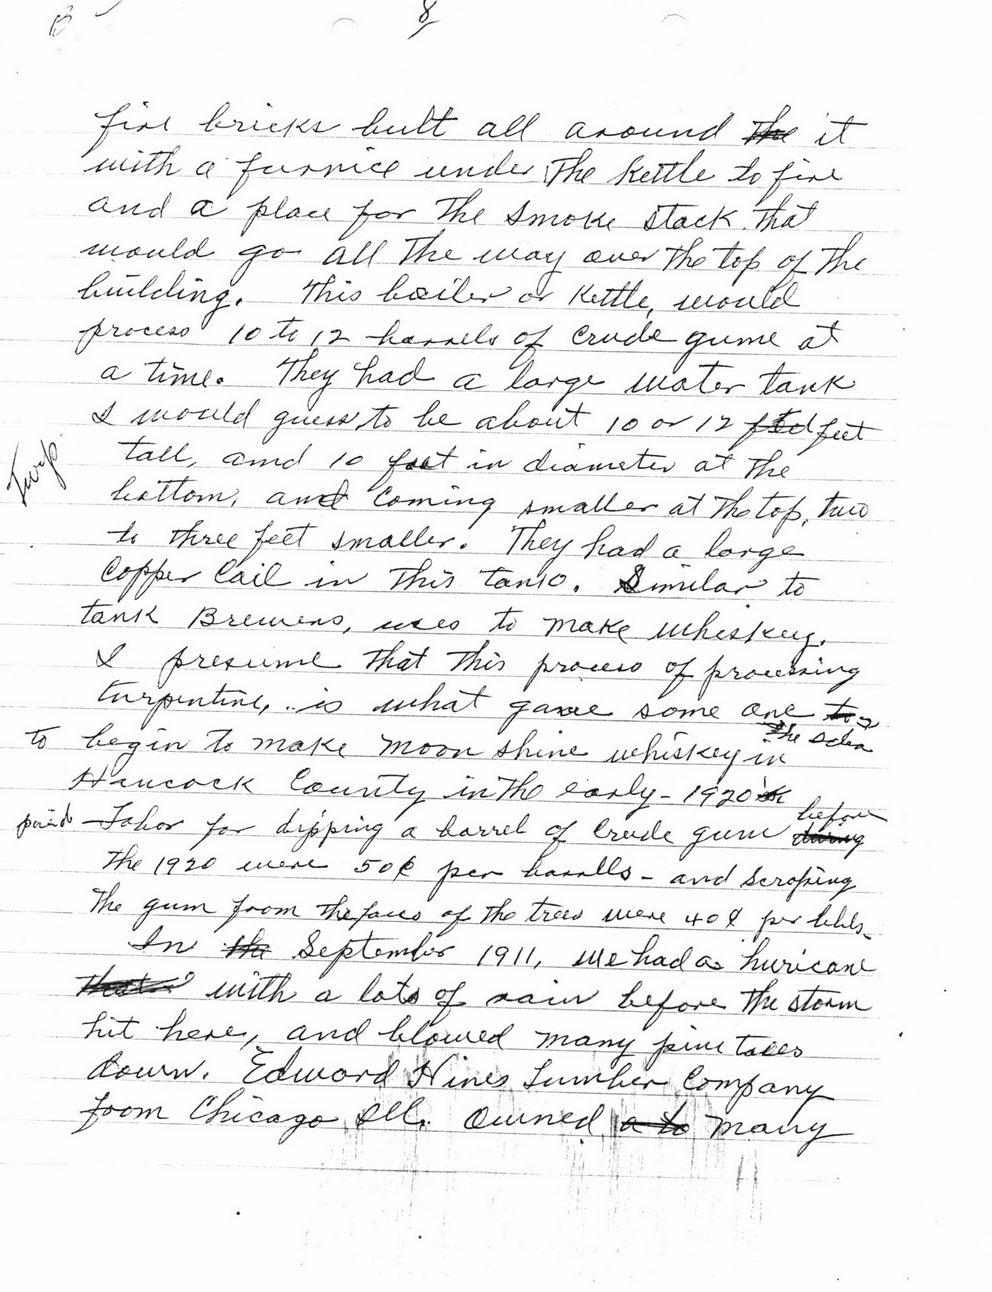 8
fire bricks bult all around the it
with a furnice under The kettle to fire
and a place for The smoke stack that
would go all The way over The top of The
building. This boiler or Kettle, would
process 10 to 12 barrels of Crude gume at
a time. They had a large water tank
I would guess, to be about 10 or 12 feet
Turp
tall, and 10 foot in diameter at The
bottom, and Coming smaller at The top, two
to three feet smaller. They had a large
Copper Coil in This tank. Similar to
tank Brewers, uses to make whiskey.
I presume That This process of processing
turpentine, is what gave some one to
the idea
to begin to make moon shine whiskey in
Hancock County in The early - 1920
before
paid - Labor for dipping a barrel of Crude gum during
The 1920 were 50¢ per barells - and scraping
The gum from The faces of The trees were 40¢ per bbls.
In the September 1911, we had a huricane
that with a lots of rain before The storm
hit here, and blowed many pine trees
down. Edward Hines Lumber Company
from Chicago Ill. Owned a to many